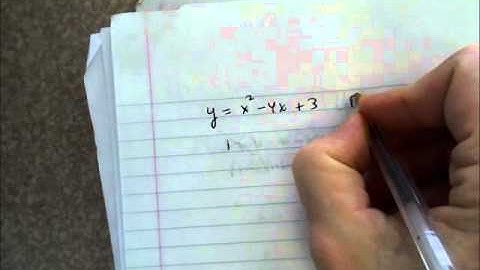 y = x² - 4x + 3